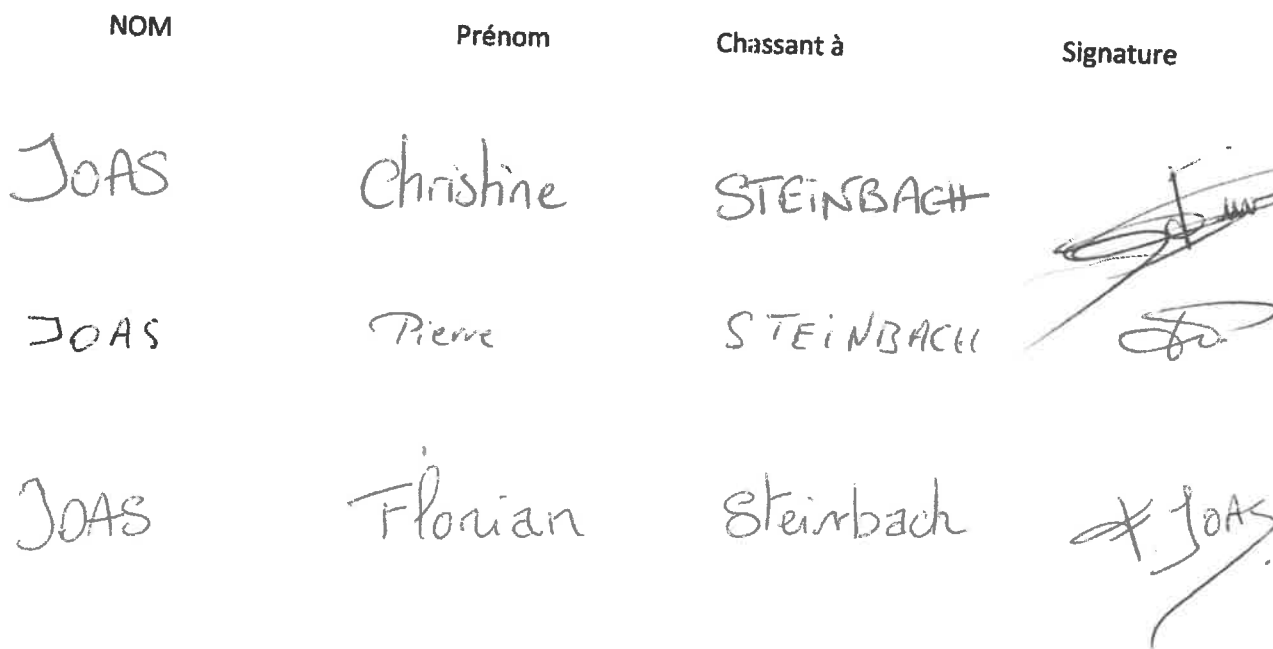 NOM Prénom Chassant à Signature
JOAS Christine STEINBACH
JOAS Pierre STEINBACH
JOAS Florian Steinbach JOAS